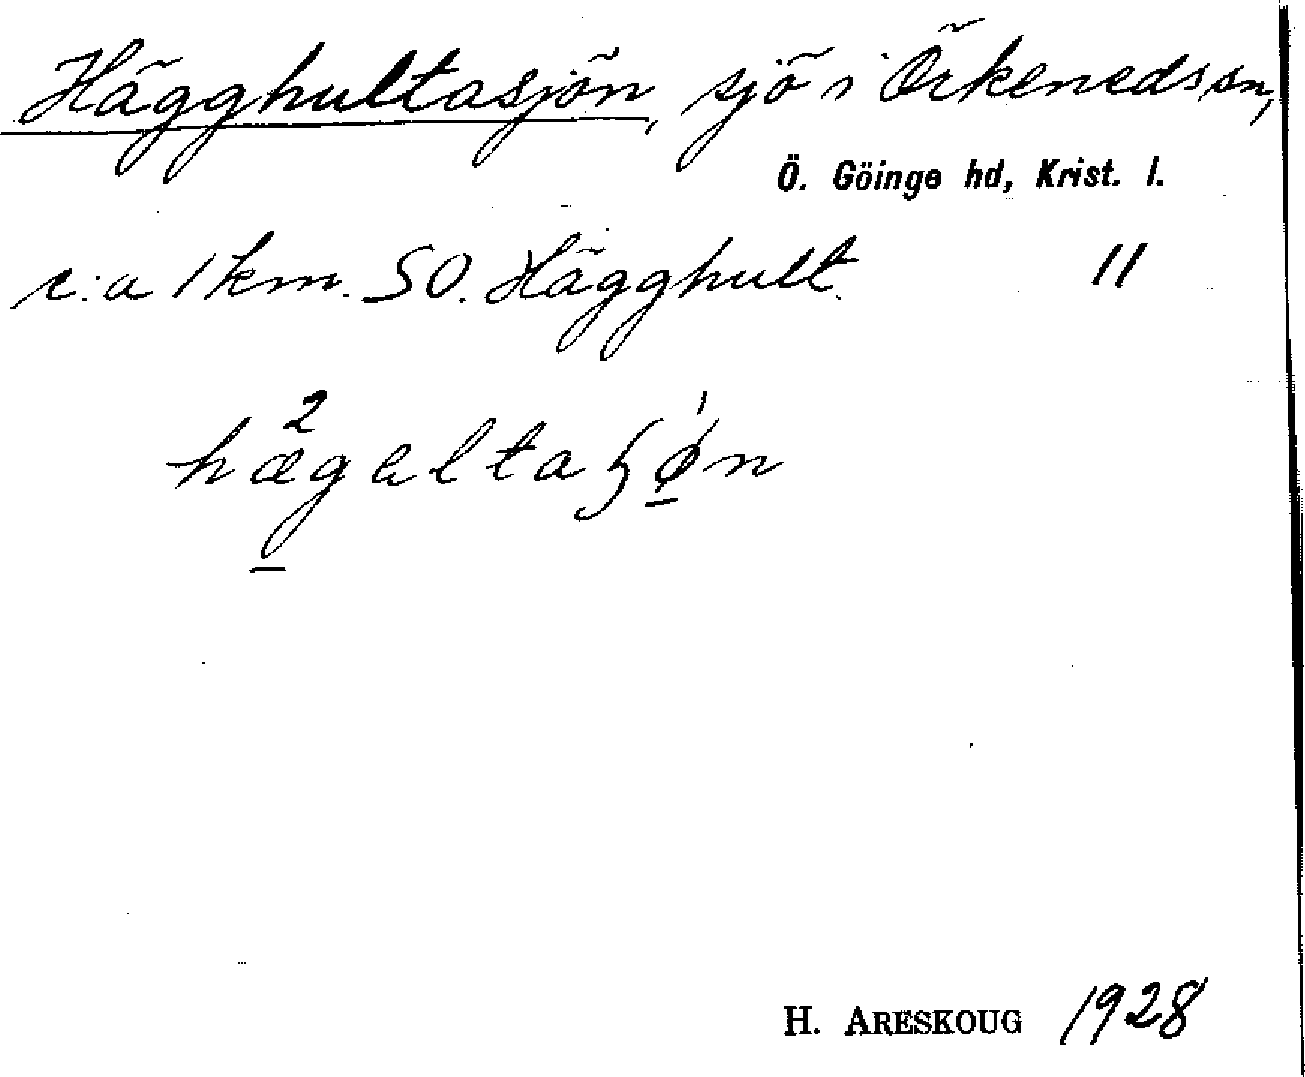 Hägghultasjön, sjö i Örkeneds sn,
Ö. Göinge hd, Krist. l.
c:a 1 km. SO. Hägghult. 11
H. ARESKOUG 1928